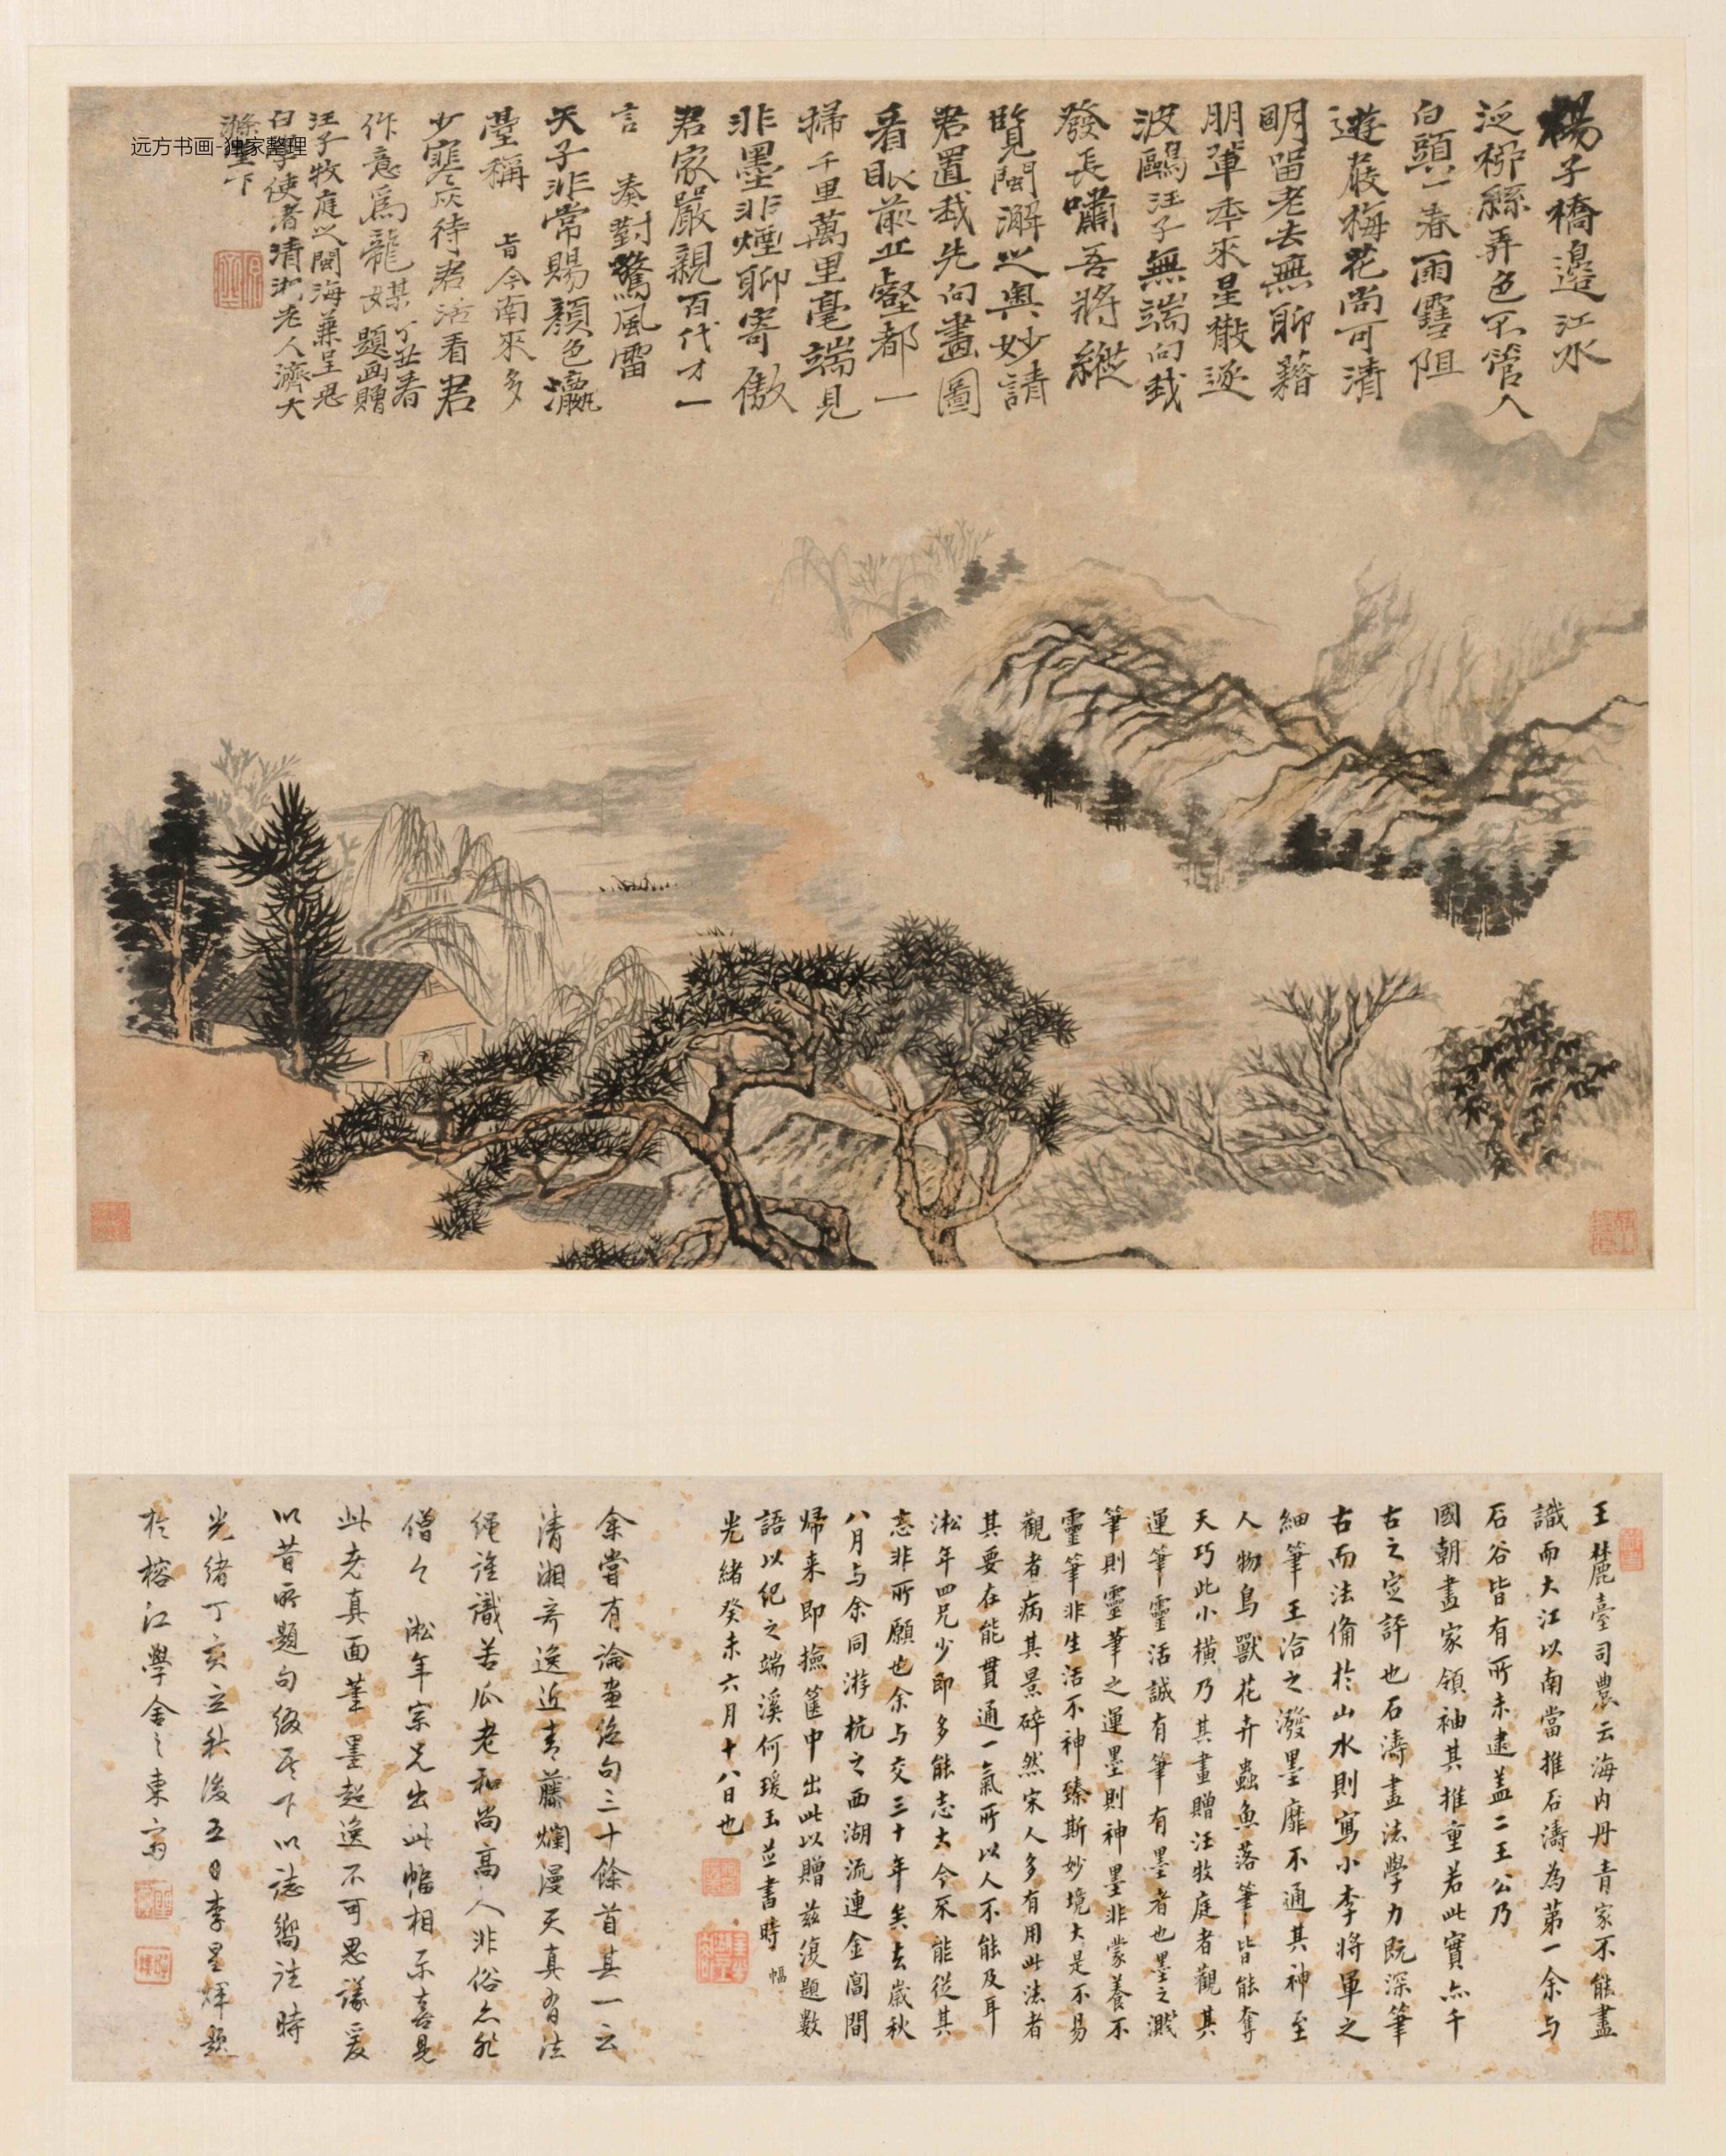 楊子橋邊江水
泛柳絲弄色不管人
白頭一春雨雪阻
遊屐梅花尚可清
明留老去無聊藉
朋輩年來星散逐
波鷗汪子無端向我
發長嘯吾將縱
覽閩澥之奧妙請
君置我先向畫圖
看眼前丘壑都一
掃千里萬里毫端見
非墨非煙聊寄傲
君家嚴親百代才一
言奏對驚風雷
天子非常賜顏色瀛
臺稱旨今南來多
少寒灰待君活看君
作意為龍媒丁丑春題畫贈
汪子牧庭之閩海兼呈思
白學使者清湘老人濟大
滌堂下
远方书画-独家整理
王麓臺司農云海內丹青家不能盡
識而大江以南當推石濤為第一余与
石谷皆有所未逮蓋二王公乃
國朝畫家領袖其推重若此實亦千
古之定評也石濤畫法學力既深筆
古而法備於山水則寫小李將軍之
細筆王洽之潑墨靡不通其神至
人物鳥獸花卉蟲魚落筆皆能奪
天巧此小橫乃其畫贈汪牧庭者觀其
運筆靈活誠有筆有墨者也墨之濺
筆則靈筆之運墨則神墨非蒙養不
靈筆非生活不神臻斯妙境大是不易
觀者病其景碎然宋人多有用此法者
其要在能貫通一氣所以人不能及耳
淞年四兄少即多能志大今不能從其
志非所願也余与交三十年矣去歲秋
八月与余同游杭之西湖流連金閶間
歸来即撿篋中出此以贈茲復題數
語以紀之端溪何瑗玉並書時
幅
光緒癸未六月十八日也
余嘗有論畫絕句三十餘首其一云
清湘奇逸近青藤爛漫天真有法
繩誰識苦瓜老和尚高人非俗亦非
僧今淞年宗兄出此幅相示喜見
此老真面筆墨超逸不可思議爰
以昔所題句綴於下以誌嚮往時
光緒丁亥立秋後五日李星輝題
於榕江學舍之東齋